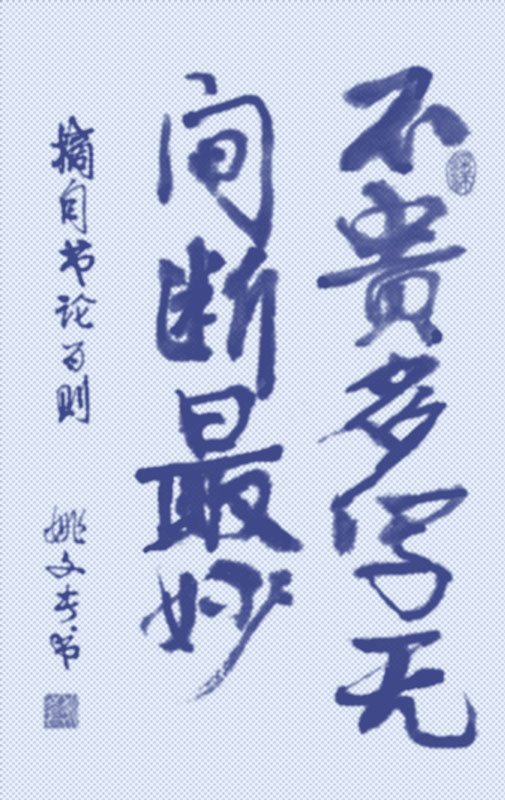 不贵多写无
间断最妙
摘自书论百则
姚文奎书